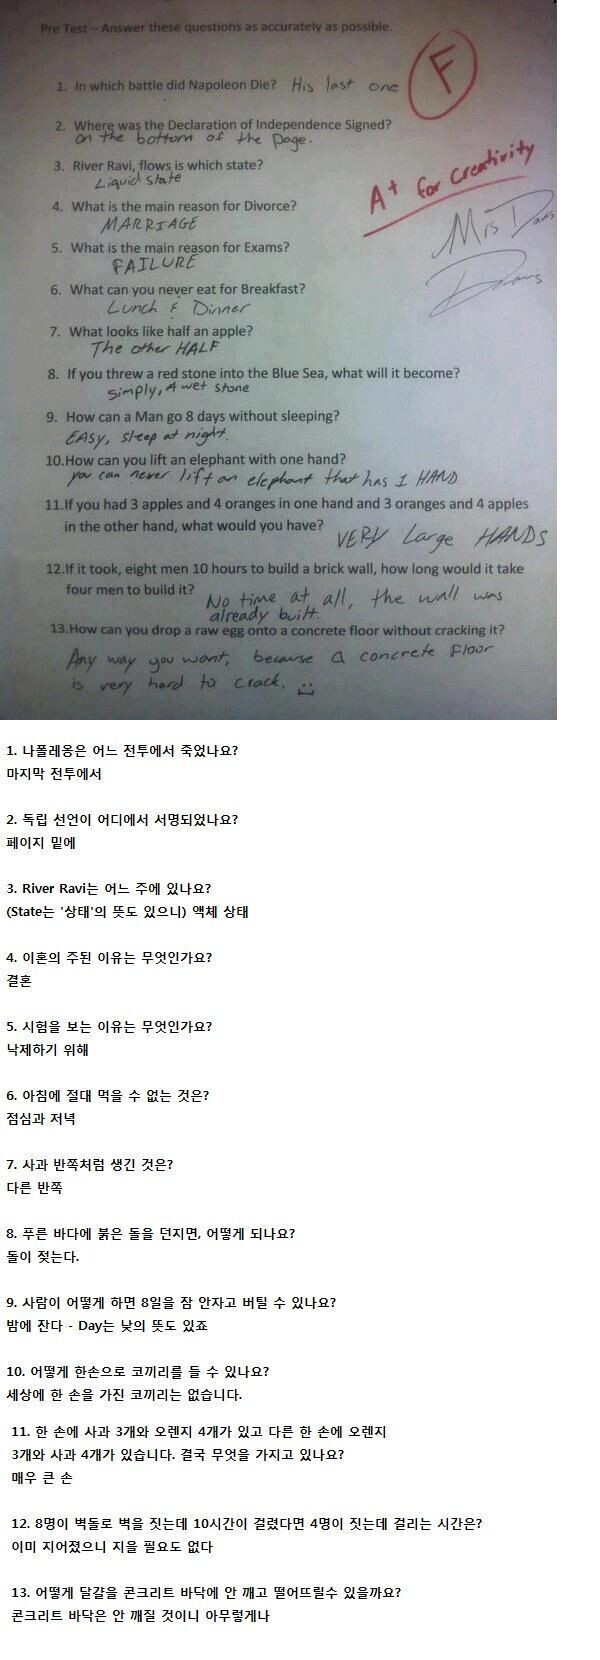 Pre Test – Answer these questions as accurately as possible.
F
1. In which battle did Napoleon Die? His last one
2. Where was the Declaration of Independence Signed?
on the bottom of the page.
A+ for Creativity
3. River Ravi, flows is which state?
Liquid state
4. What is the main reason for Divorce?
MARRIAGE
Mrs Davis
5. What is the main reason for Exams?
FAILURE
6. What can you never eat for Breakfast?
Lunch & Dinner
7. What looks like half an apple?
The other HALF
8. If you threw a red stone into the Blue Sea, what will it become?
simply, A wet stone
9. How can a Man go 8 days without sleeping?
EASY, sleep at night.
10.How can you lift an elephant with one hand?
you can never lift an elephant that has 1 HAND
11.If you had 3 apples and 4 oranges in one hand and 3 oranges and 4 apples
in the other hand, what would you have? VERY Large HANDS
12.If it took, eight men 10 hours to build a brick wall, how long would it take
four men to build it? No time at all, the wall was
already built.
13.How can you drop a raw egg onto a concrete floor without cracking it?
Any way you want, because a concrete Floor
is very hard to crack.
1. 나폴레옹은 어느 전투에서 죽었나요?
마지막 전투에서
2. 독립 선언이 어디에서 서명되었나요?
페이지 밑에
3. River Ravi는 어느 주에 있나요?
(State는 '상태'의 뜻도 있으니) 액체 상태
4. 이혼의 주된 이유는 무엇인가요?
결혼
5. 시험을 보는 이유는 무엇인가요?
낙제하기 위해
6. 아침에 절대 먹을 수 없는 것은?
점심과 저녁
7. 사과 반쪽처럼 생긴 것은?
다른 반쪽
8. 푸른 바다에 붉은 돌을 던지면, 어떻게 되나요?
돌이 젖는다.
9. 사람이 어떻게 하면 8일을 잠 안자고 버틸 수 있나요?
밤에 잔다 - Day는 낮의 뜻도 있죠
10. 어떻게 한손으로 코끼리를 들 수 있나요?
세상에 한 손을 가진 코끼리는 없습니다.
11. 한 손에 사과 3개와 오렌지 4개가 있고 다른 한 손에 오렌지
3개와 사과 4개가 있습니다. 결국 무엇을 가지고 있나요?
매우 큰 손
12. 8명이 벽돌로 벽을 짓는데 10시간이 걸렸다면 4명이 짓는데 걸리는 시간은?
이미 지어졌으니 지을 필요도 없다
13. 어떻게 달걀을 콘크리트 바닥에 안 깨고 떨어뜨릴수 있을까요?
콘크리트 바닥은 안 깨질 것이니 아무렇게나